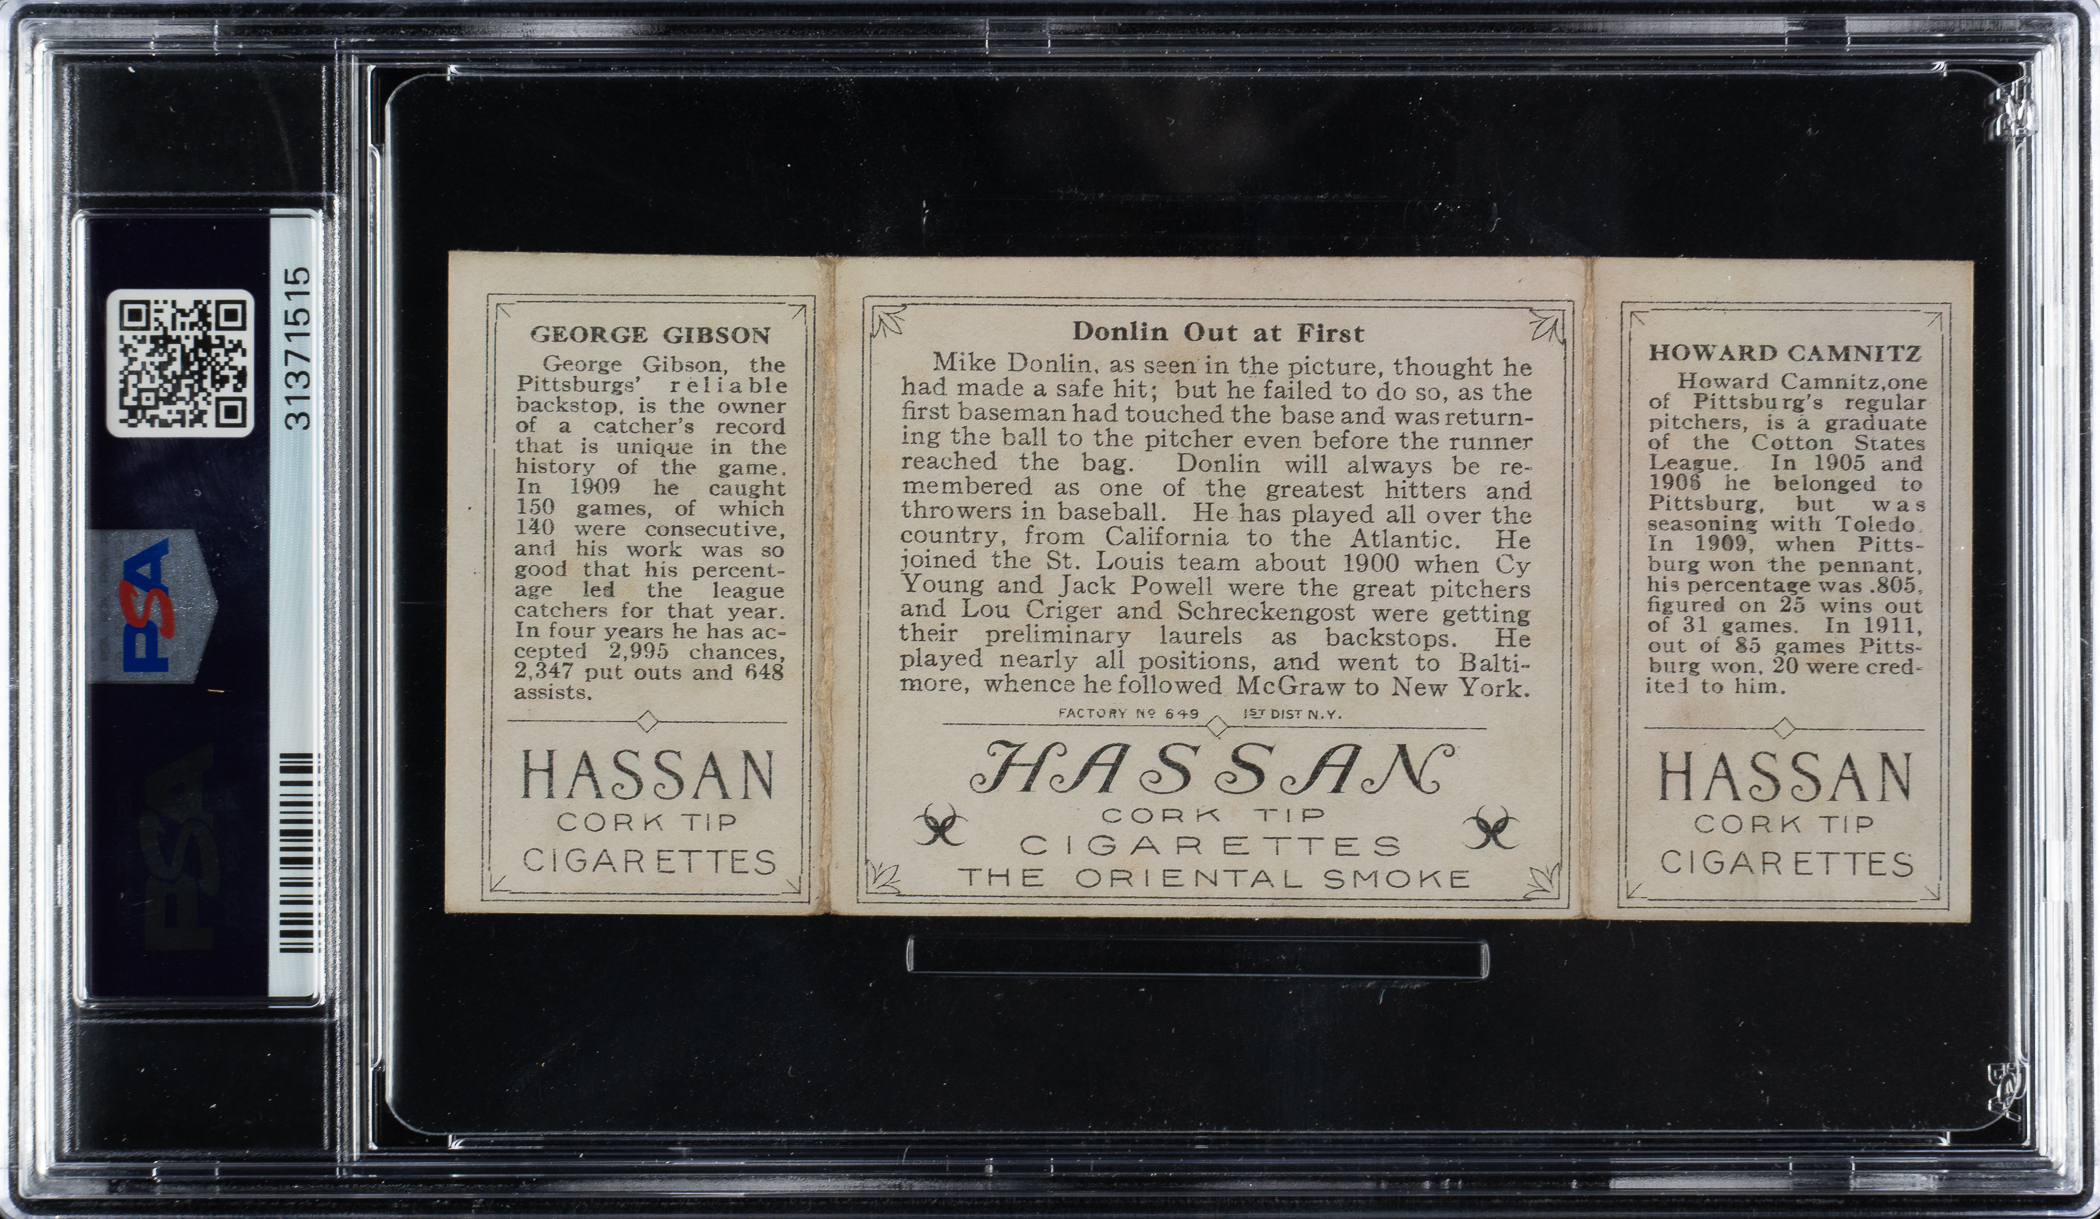 31371515
PSA
PSA
GEORGE GIBSON
George Gibson, the
Pittsburgs' reliable
backstop, is the owner
of a catcher's record
that is unique in the
history of the game.
In 1909 he caught
150 games, of which
140 were consecutive,
and his work was so
good that his percent-
age led the league
catchers for that year.
In four years he has ac-
cepted 2,995 chances,
2,347 put outs and 648
assists.
HASSAN
CORK TIP
CIGARETTES
Donlin Out at First
Mike Donlin, as seen in the picture, thought he
had made a safe hit; but he failed to do so, as the
first baseman had touched the base and was return-
ing the ball to the pitcher even before the runner
reached the bag. Donlin will always be re-
membered as one of the greatest hitters and
throwers in baseball. He has played all over the
country, from California to the Atlantic. He
joined the St. Louis team about 1900 when Cy
Young and Jack Powell were the great pitchers
and Lou Criger and Schreckengost were getting
their preliminary laurels as backstops. He
played nearly all positions, and went to Balti-
more, whence he followed McGraw to New York.
FACTORY Nº 649 1ST DIST N.Y.
HASSAN
CORK TIP
CIGARETTES
THE ORIENTAL SMOKE
HOWARD CAMNITZ
Howard Camnitz, one
of Pittsburg's regular
pitchers, is a graduate
of the Cotton States
League. In 1905 and
1906 he belonged to
Pittsburg, but was
seasoning with Toledo.
In 1909, when Pitts-
burg won the pennant,
his percentage was .805,
figured on 25 wins out
of 31 games. In 1911,
out of 85 games Pitts-
burg won, 20 were cred-
ited to him.
HASSAN
CORK TIP
CIGARETTES